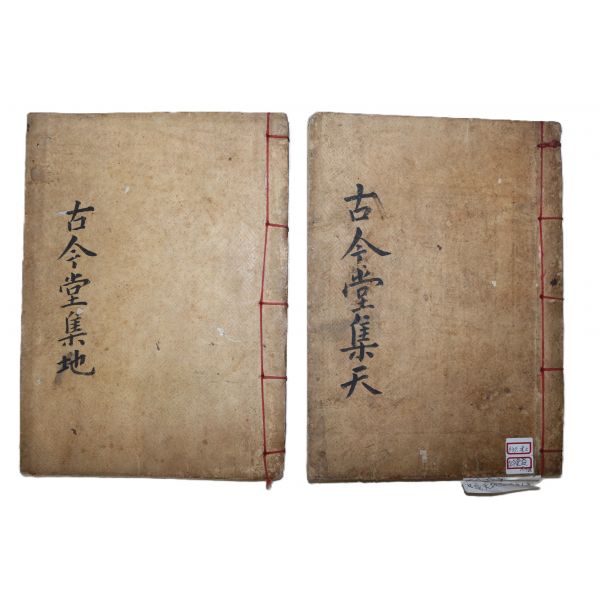 古今堂集地
古今堂集天